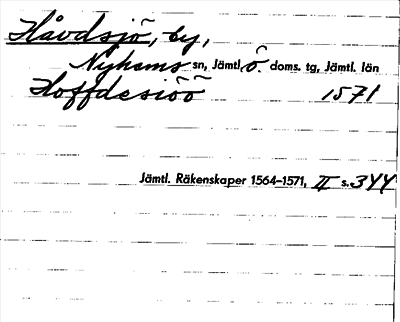 Håvdsjö, by,
Nyhems sn, Jämtl. ö. doms. tg, Jämtl. län
Hoffdesiöö 1571
Jämtl. Räkenskaper 1564–1571, II s. 344